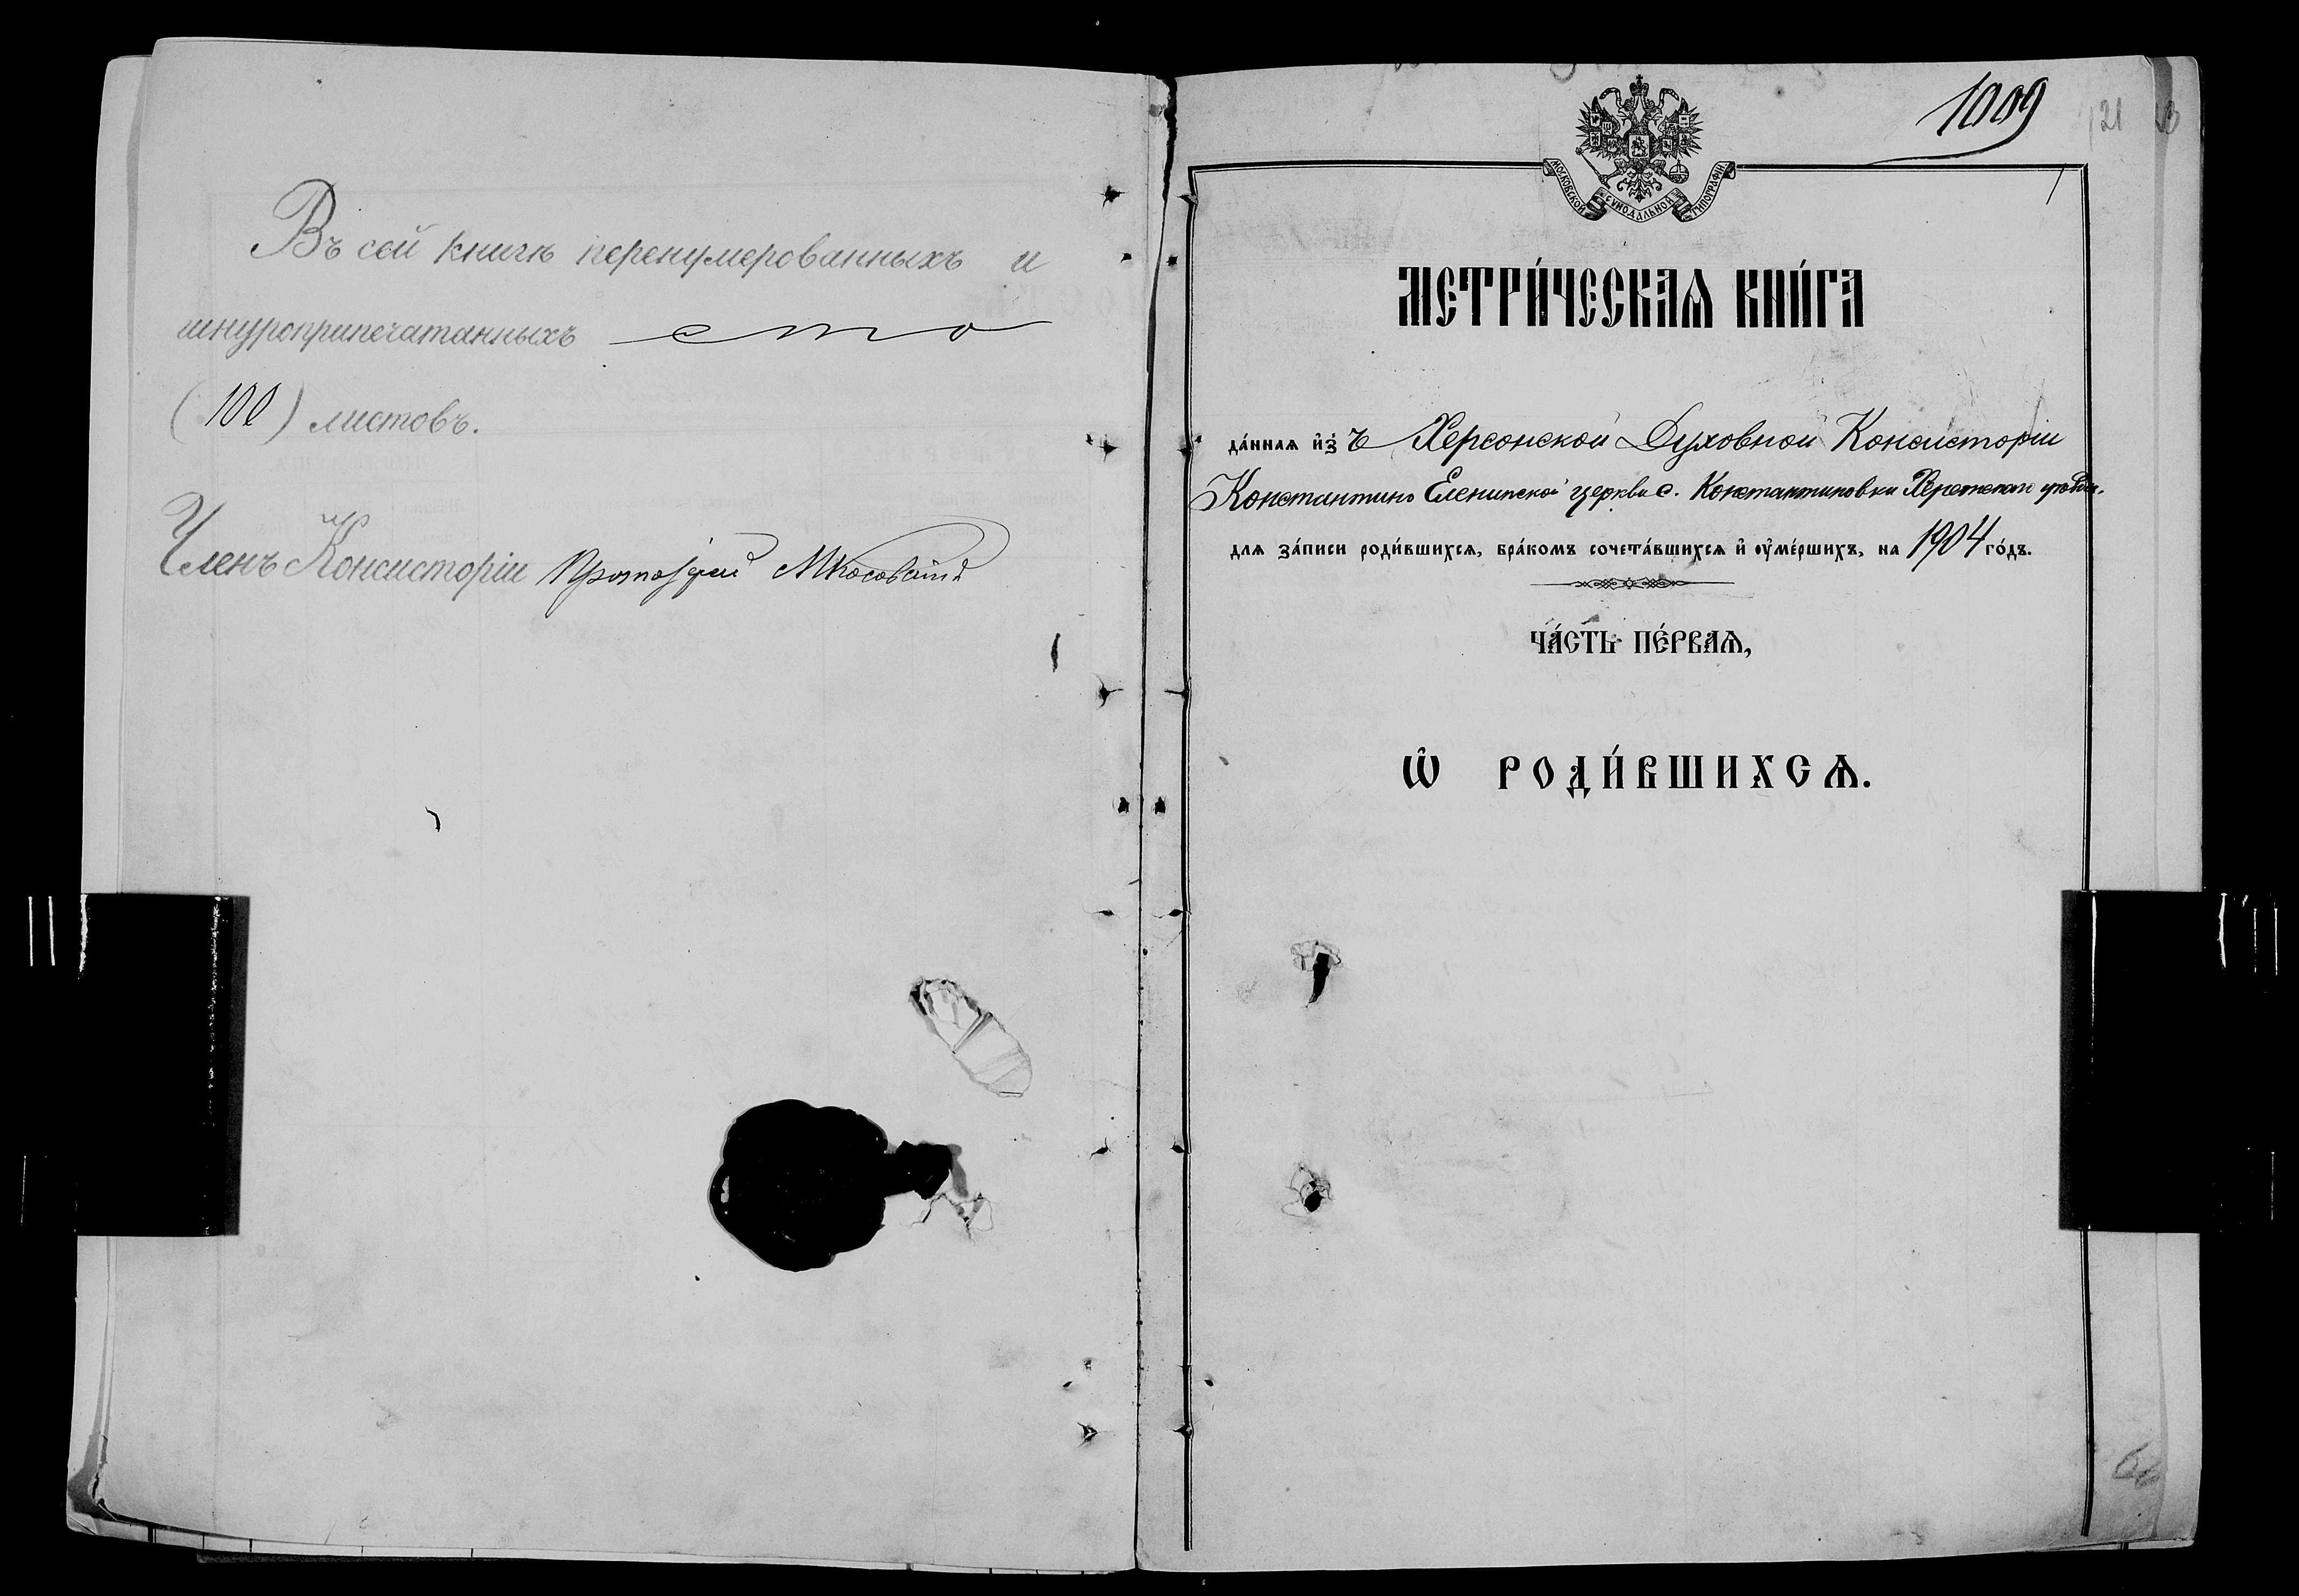 Въ сей книгѣ перенумерованныхъ и
шнуроприпечатанныхъ сто
(100) листовъ.
Членъ Консисторіи Протоіерей
1009
121
МОСКОВСКОЙ СѴНОДАЛЬНОЙ ТИПОГРАФІИ
1
МЕТРИ́ЧЕСКАѦ КНИ́ГА
да́ннаѧ и҆з̾ ъ Херсонской Духовной Консисторіи
Константино Еленинской церкви с. Константиновки Херсонскаго уѣзда.
длѧ за́писи роди́вшихсѧ, бра́комъ сочета́вшихсѧ и҆ ѹ҆ме́ршихъ, на 1904 го́дъ.
ЧА́СТЬ ПЕ́РВАѦ,
Ѡ҆ РОДИ́ВШИХСѦ.